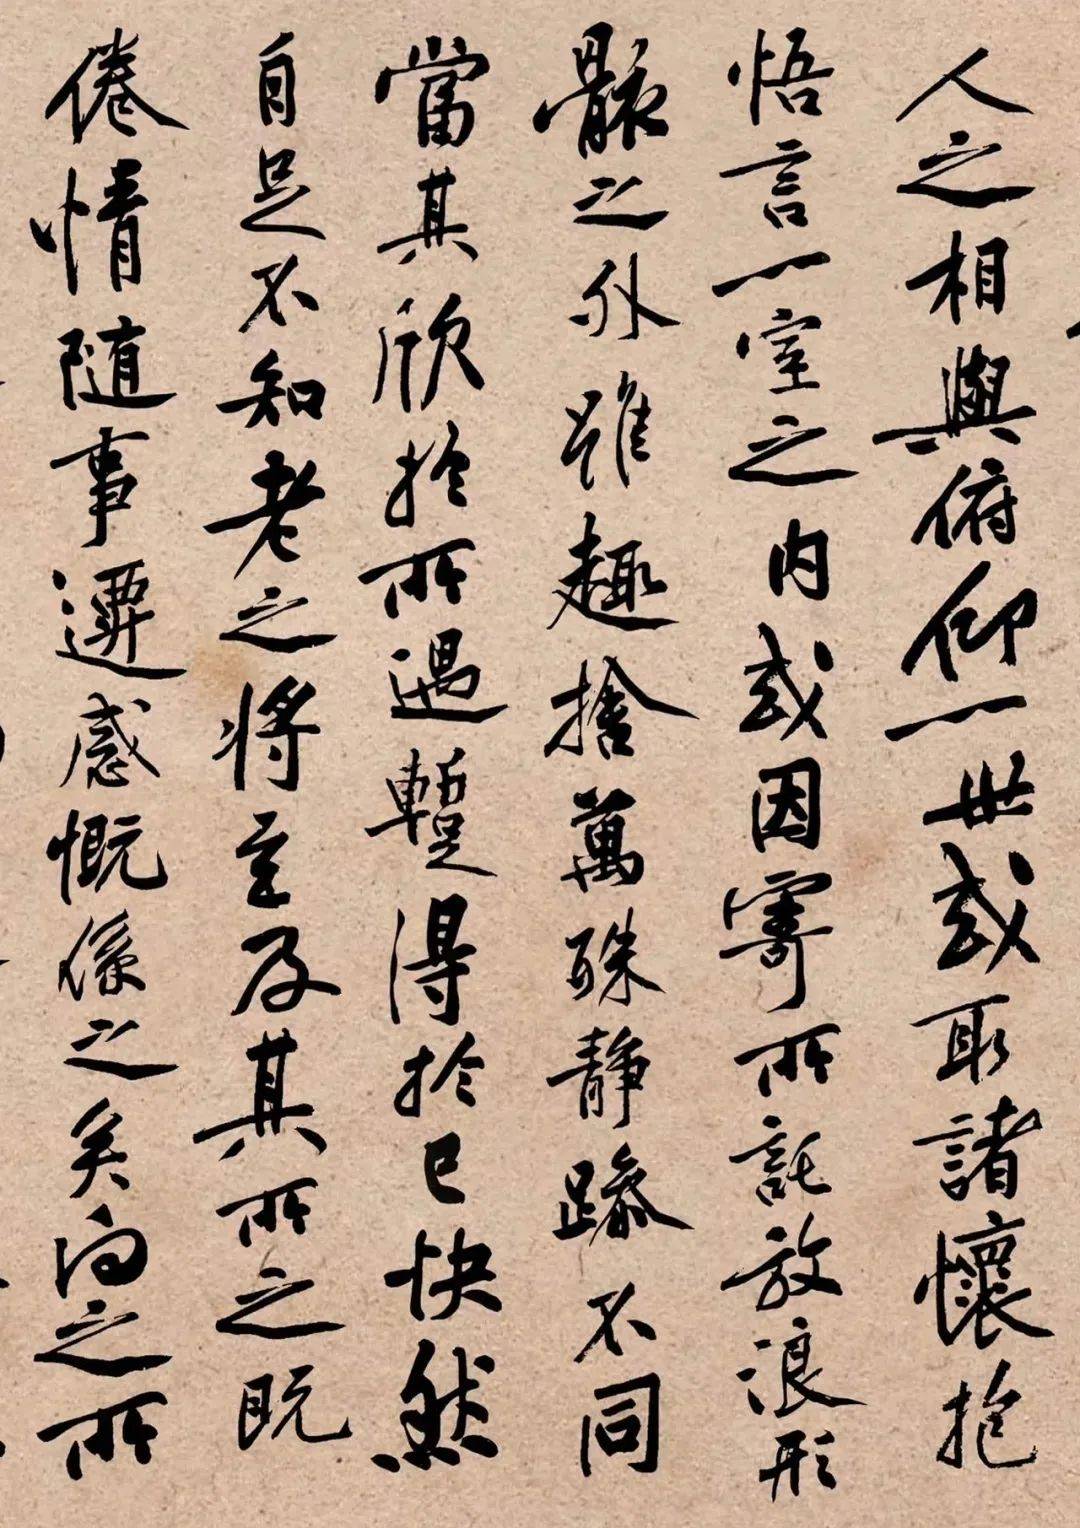 人之相與俯仰一世或取諸懷抱
悟言一室之内或因寄所託放浪形
骸之外雖趣捨萬殊静躁不同
當其欣於所遇暫得於己快然
自足不知老之將至及其所之既
倦情随事遷感慨係之矣向之所